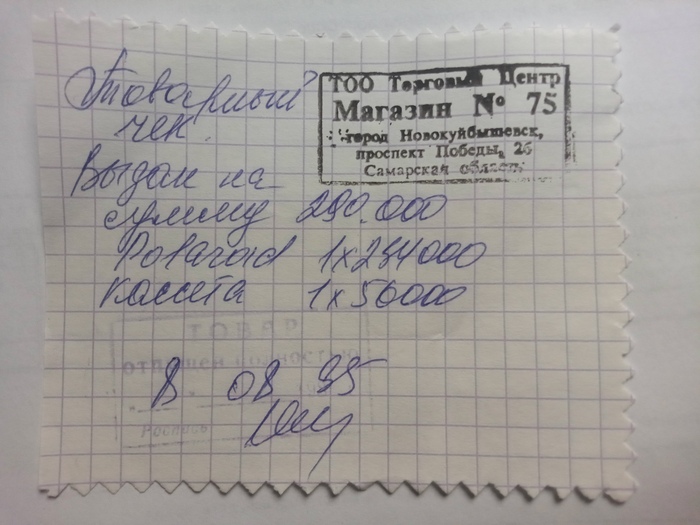 Товарный
чек
ТОО Торговый Центр
Магазин № 75
город Новокуйбышевск,
проспект Победы, 26
Самарская область
Выдан на
сумму 290.000
Polaroid 1x234000
кассета 1x56000
ТОВАР
отпущен полностью
8 08 95
Роспись